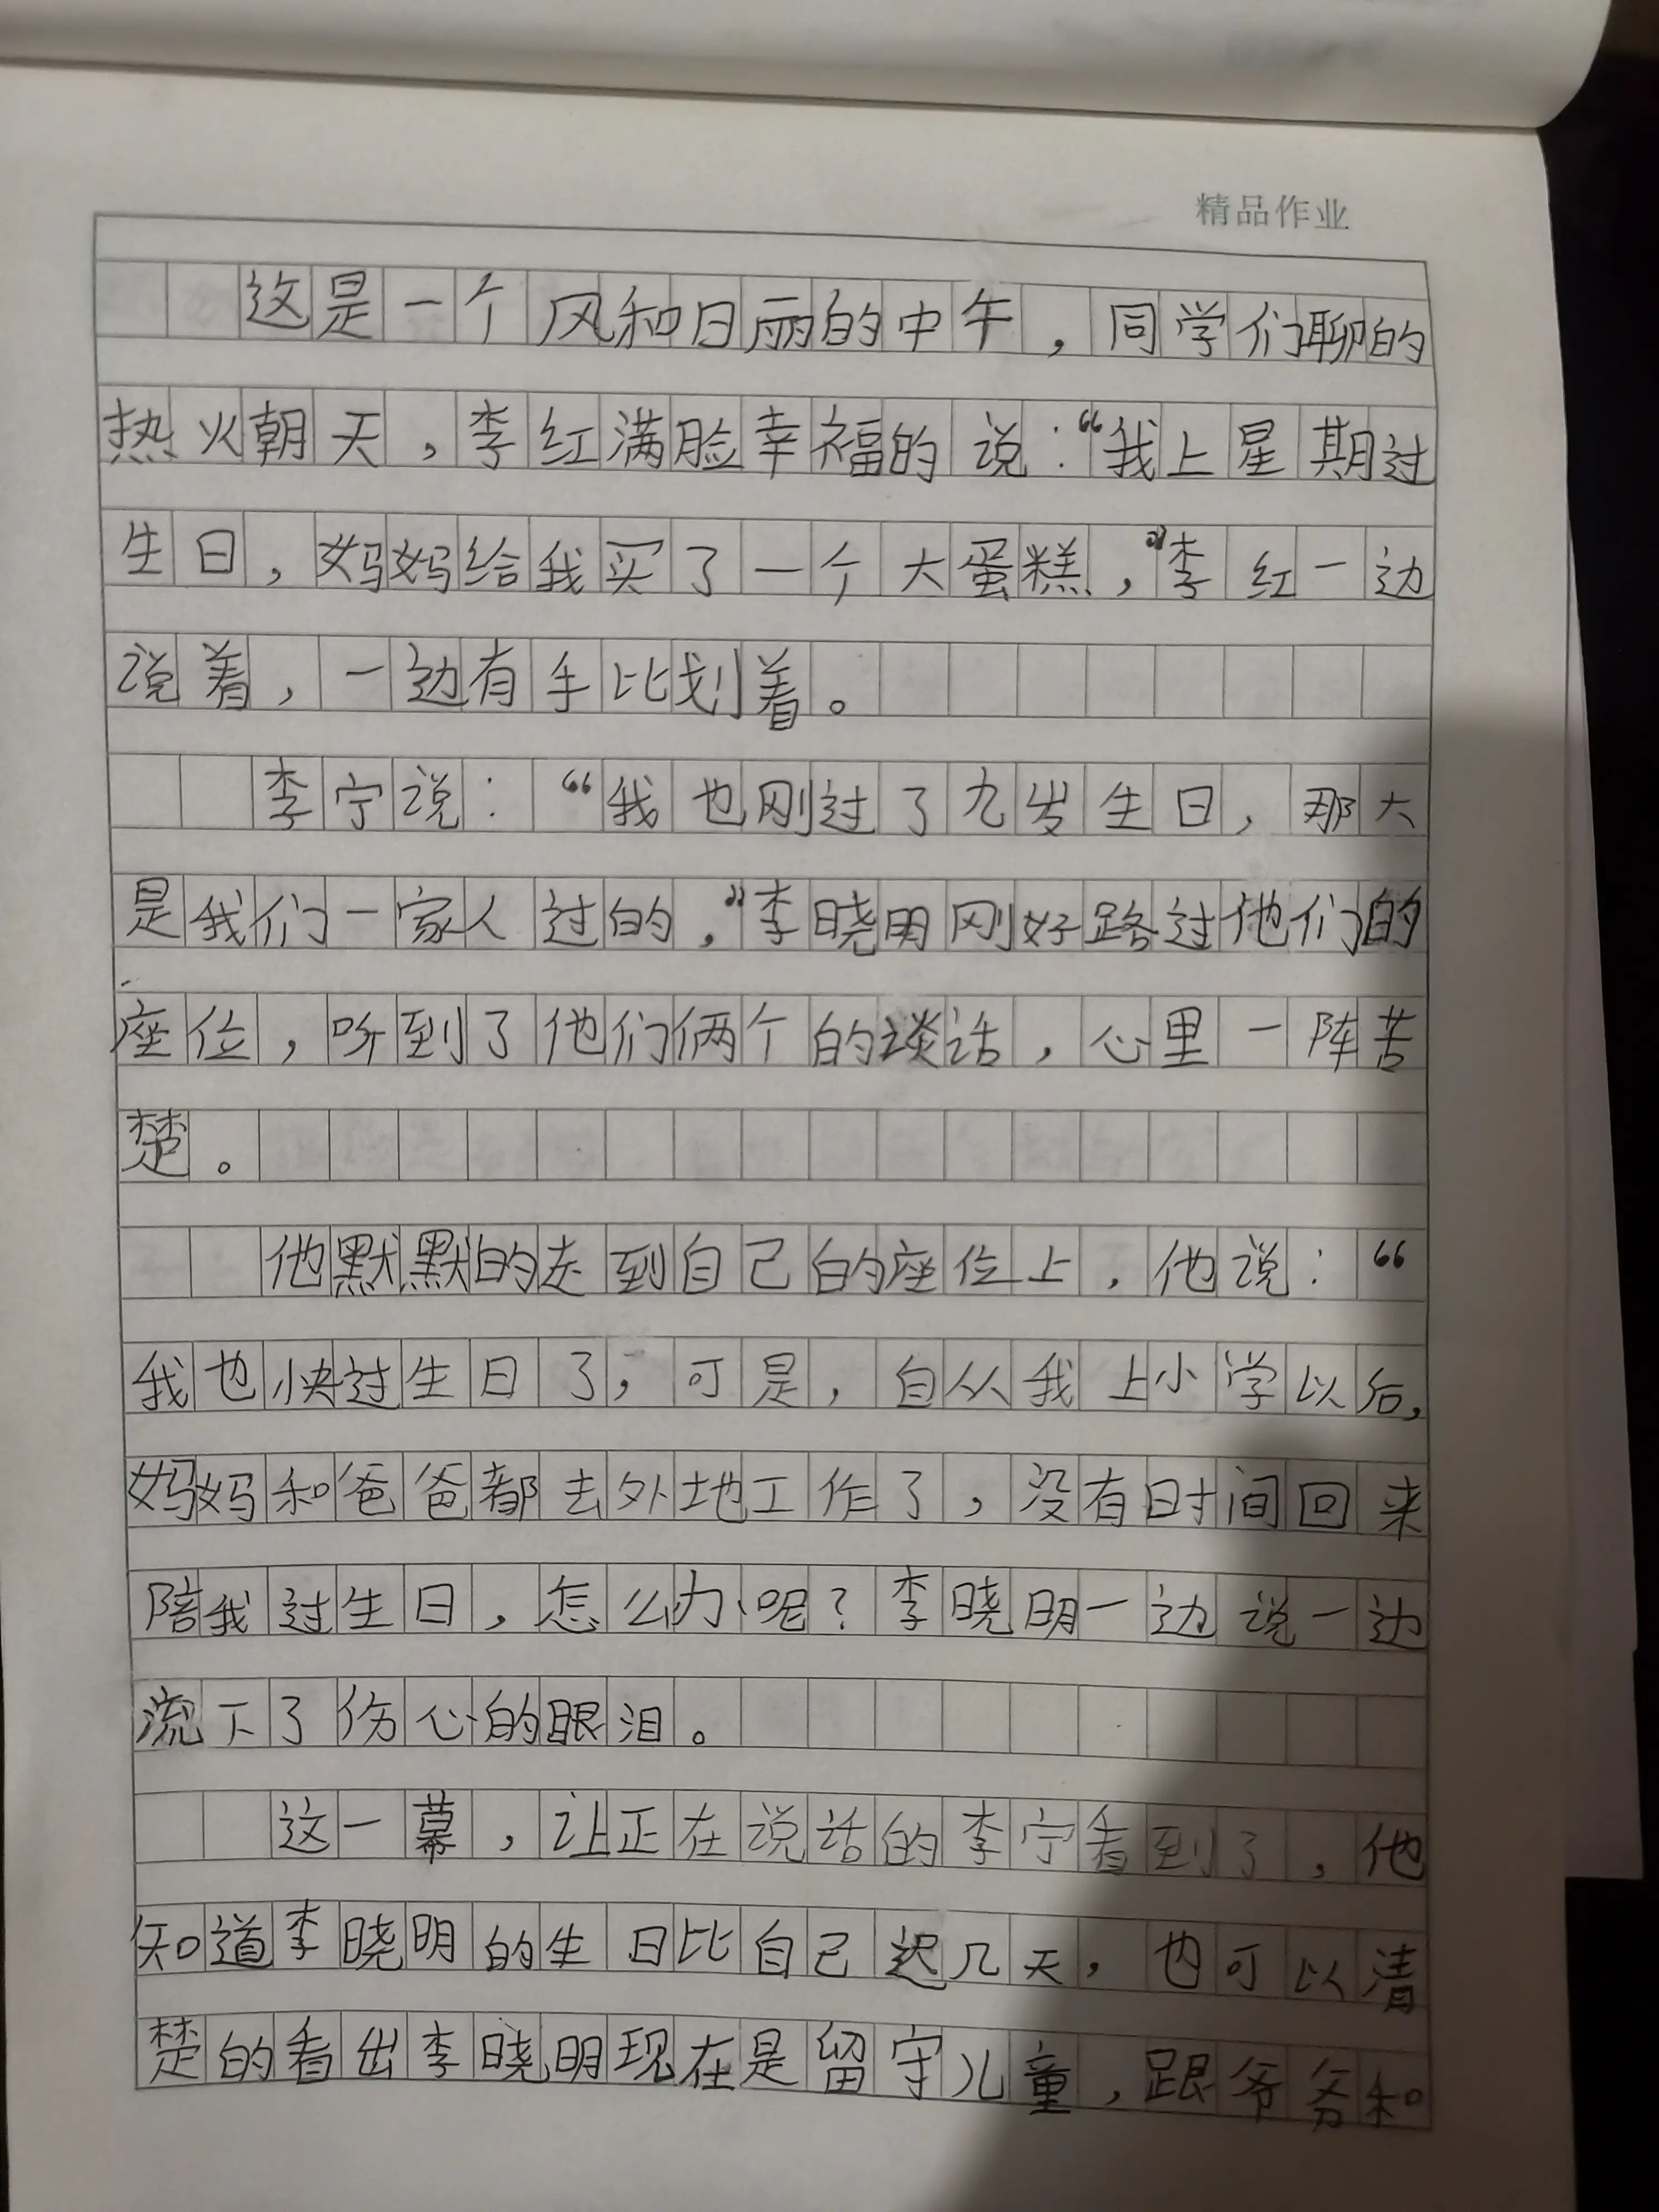 精品作业
这是一个风和日丽的中午，同学们聊的
热火朝天，李红满脸幸福的说：“我上星期过
生日，妈妈给我买了一个大蛋糕，”李红一边
说着，一边有手比划着。
李宁说：“我也刚过了九岁生日，那大
是我们一家人过的，”李晓明刚好路过他们的
座位，听到了他们俩个的谈话，心里一阵苦
楚。
他默默的走到自己的座位上，他说：“
我也快过生日了，可是，自从我上小学以后，
妈妈和爸爸都去外地工作了，没有时间回来
陪我过生日，怎么办呢？李晓明一边说一边
流下了伤心的眼泪。
这一幕，让正在说话的李宁看到了，他
知道李晓明的生日比自己迟几天，也可以清
楚的看出李晓明现在是留守儿童，跟爷爷和